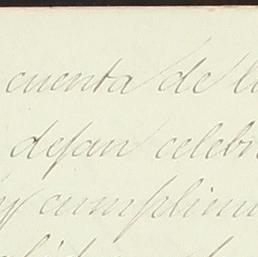 cuenta de l
dejan celeb
y cumplimi